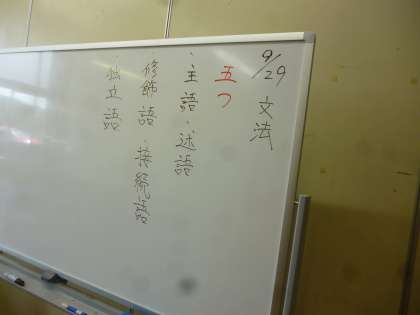 9/29 文法
五つ
・主語・述語
・修飾語・接続語
・独立語